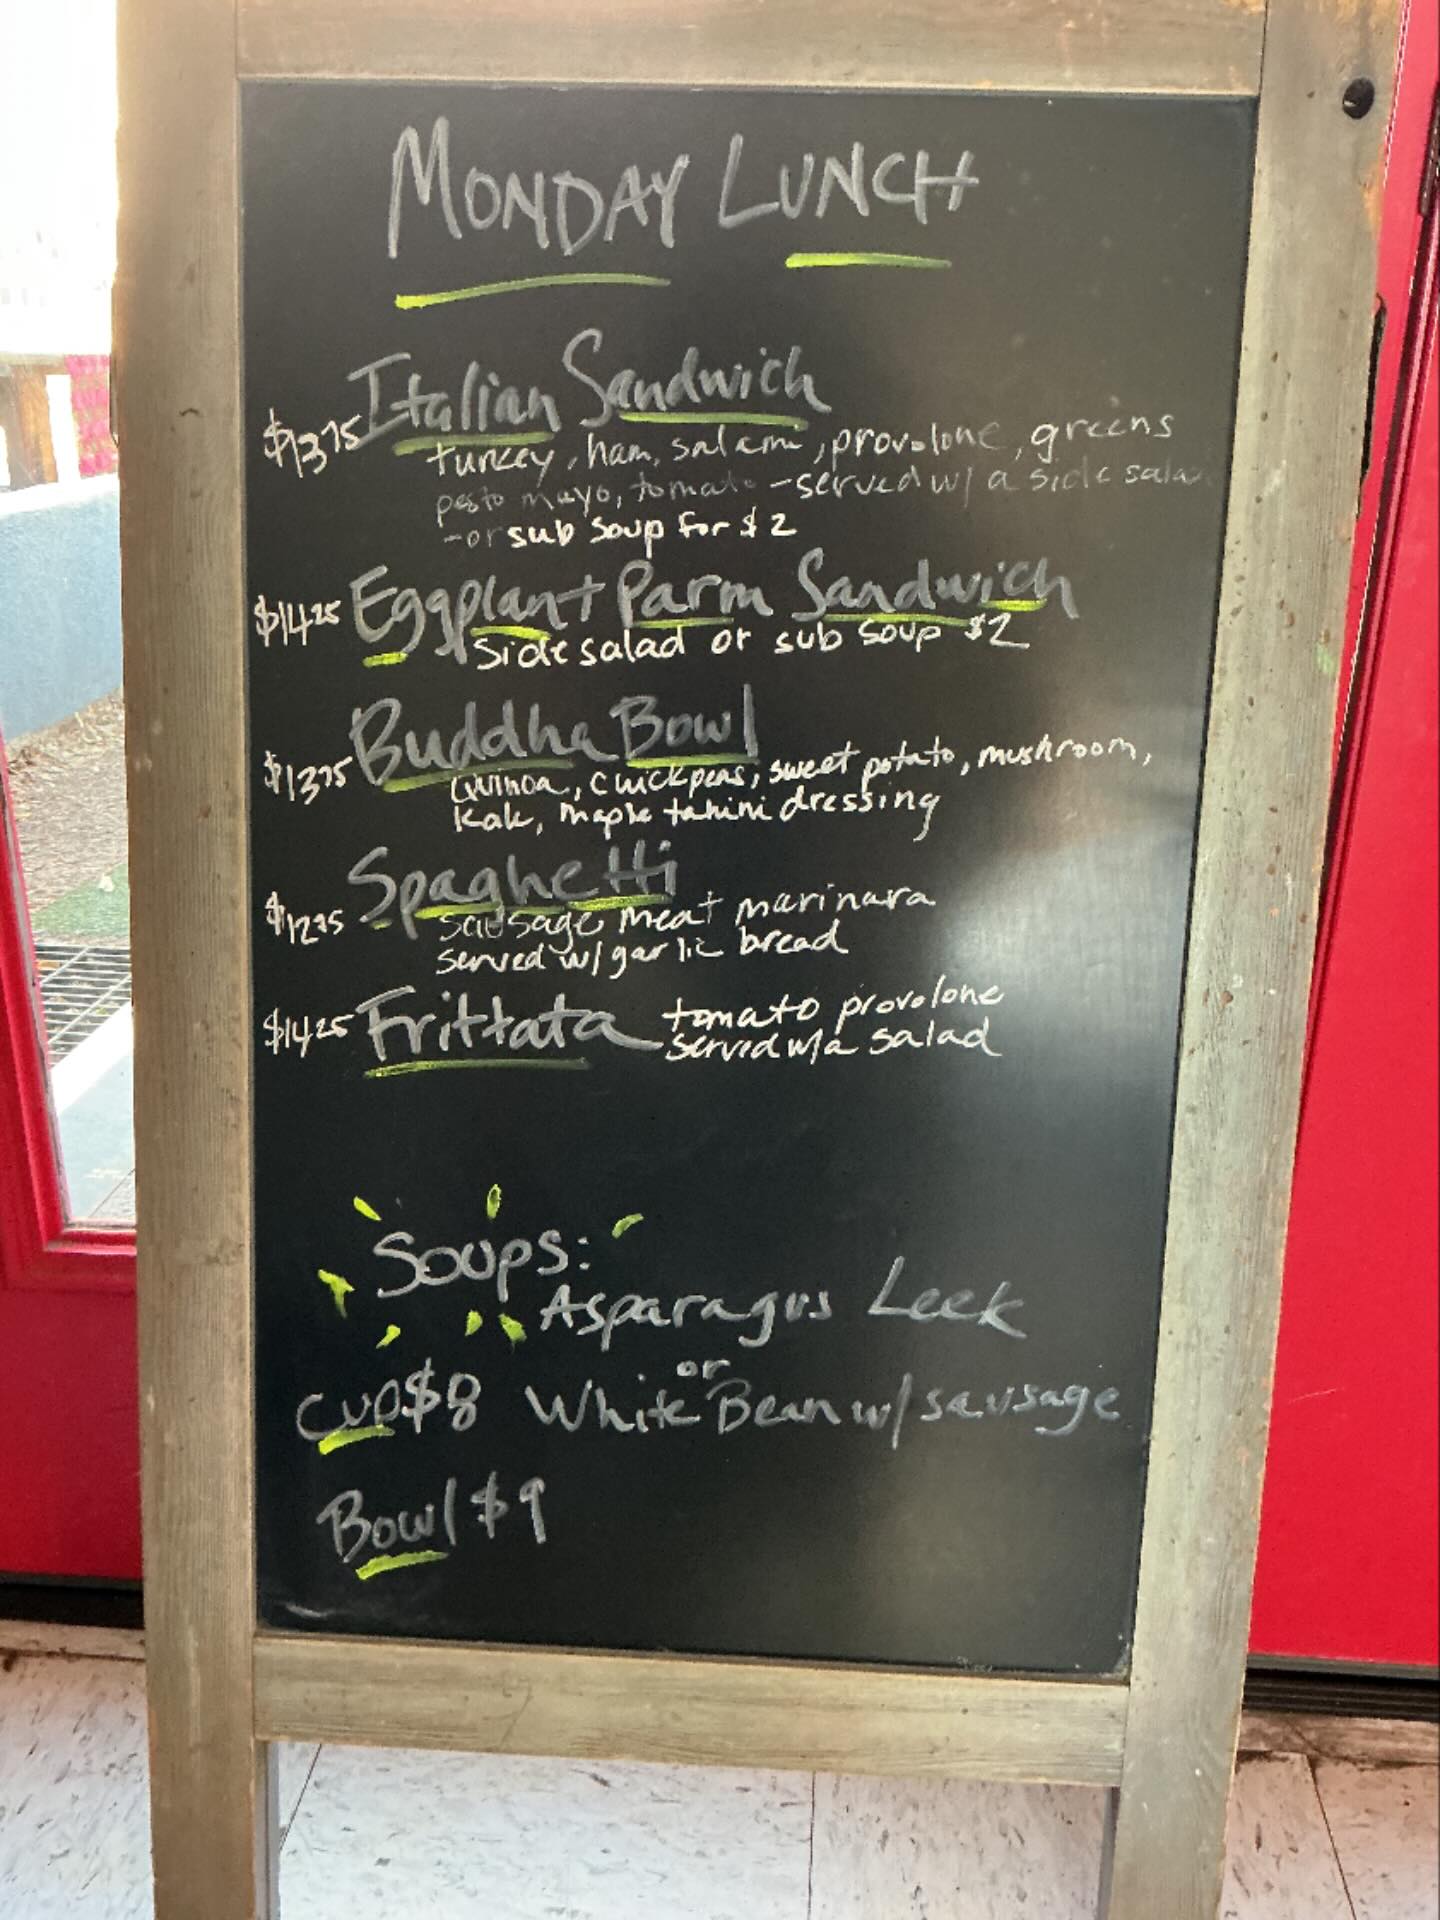 MONDAY LUNCH
$13.75 Italian Sandwich
turkey, ham, salami, provolone, greens
pesto mayo, tomato - served w/ a side salad
- or sub soup for $2
$14.25 Eggplant Parm Sandwich
side salad or sub soup $2
$13.75 Buddha Bowl
Quinoa, chickpeas, sweet potato, mushroom,
kale, maple tahini dressing
Spaghetti
sausage meat marinara
served w/ garlic bread
$14.25 Frittata tomato provolone
served w/a salad
Soups:
Asparagus Leek
or
Cup $8 White Bean w/ sausage
Bowl $9